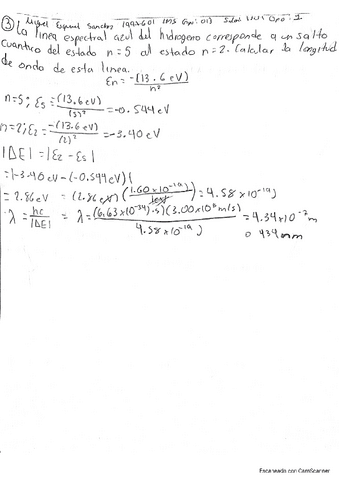 Miguel Esquivel Sanchez
③ La linea espectral azul del hidrogeno corresponde a un salto
cuantico del estado n=5 al estado n=2. Calcular la longitud
de onda de esta linea.
En = -(13.6 eV) / n²
n=5; ε5 = -(13.6 eV) / (5)² = -0.544 eV
n=2; ε2 = -(13.6 eV) / (2)² = -3.40 eV
|ΔE| = |ε2 - ε5|
= |-3.40 eV - (-0.544 eV)|
= 2.86 eV = (2.86 eV) (1.60 x 10⁻¹⁹ J / 1 eV) = 4.58 x 10⁻¹⁹ J
λ = hc / |ΔE| = λ = (6.63 x 10⁻³⁴ J·s)(3.00 x 10⁸ m/s) / 4.58 x 10⁻¹⁹ J = 4.34 x 10⁻⁷ m
o 434 nm
Escaneado con CamScanner